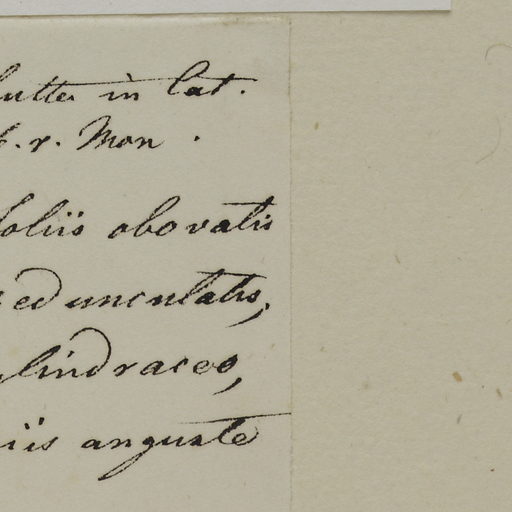 hutter in Cat.
b. r. Mon.
foliis obovatis
pedunculatis,
ylindraceo,
iis anguste